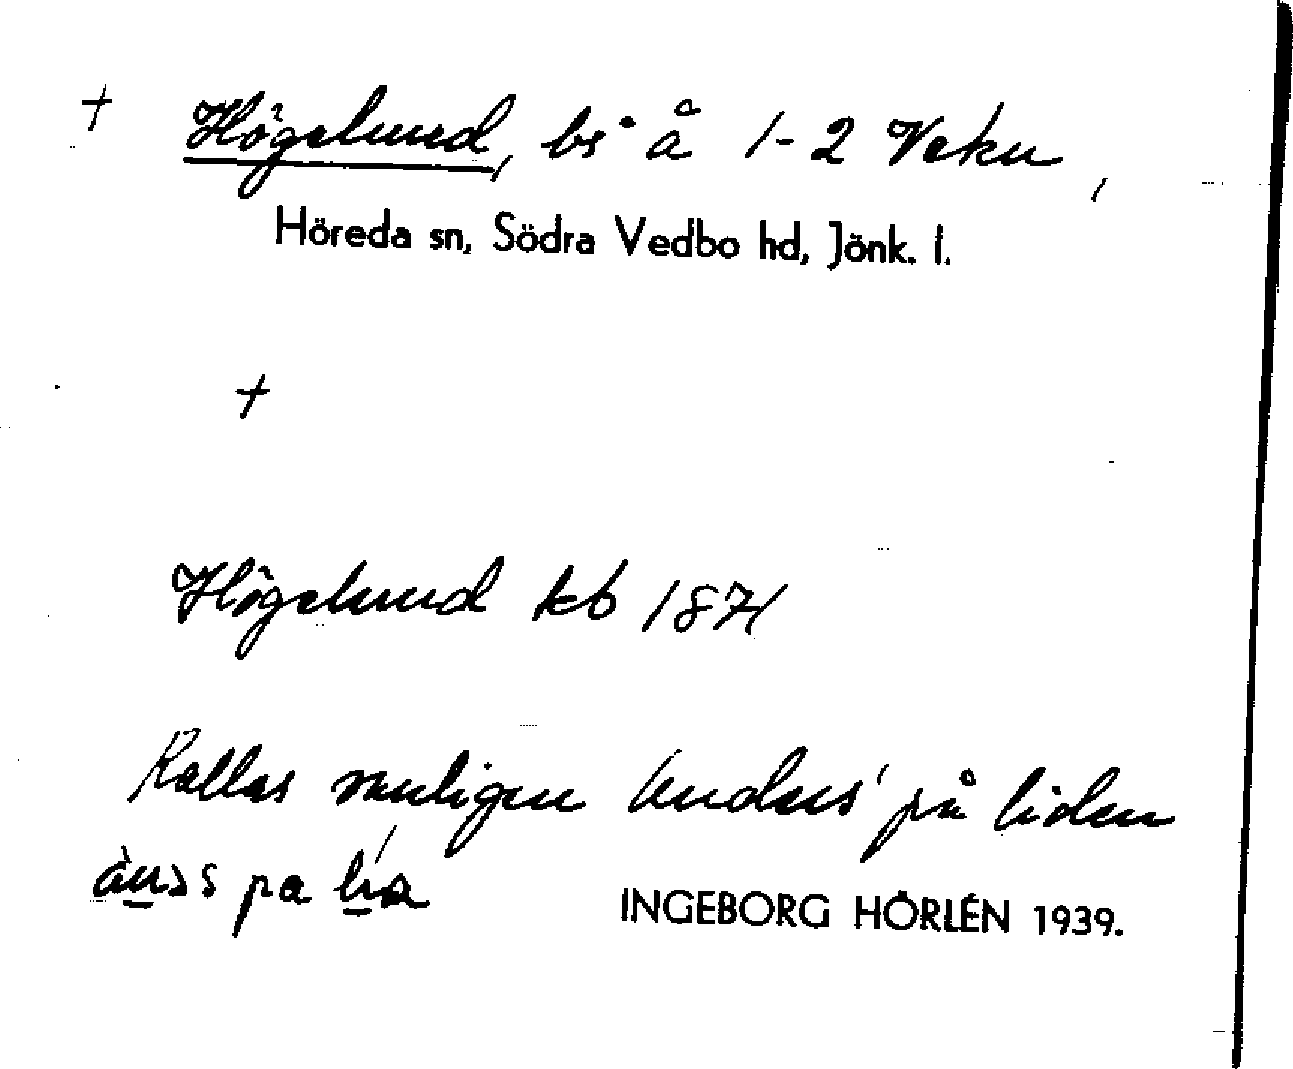 + Högelund, bs å 1-2 Veku,
Höreda sn, Södra Vedbo hd, Jönk. l.
+
Högelund kb 1871
Kallas muligen Anders' på liden
pa lia
INGEBORG HÖRLÉN 1939.